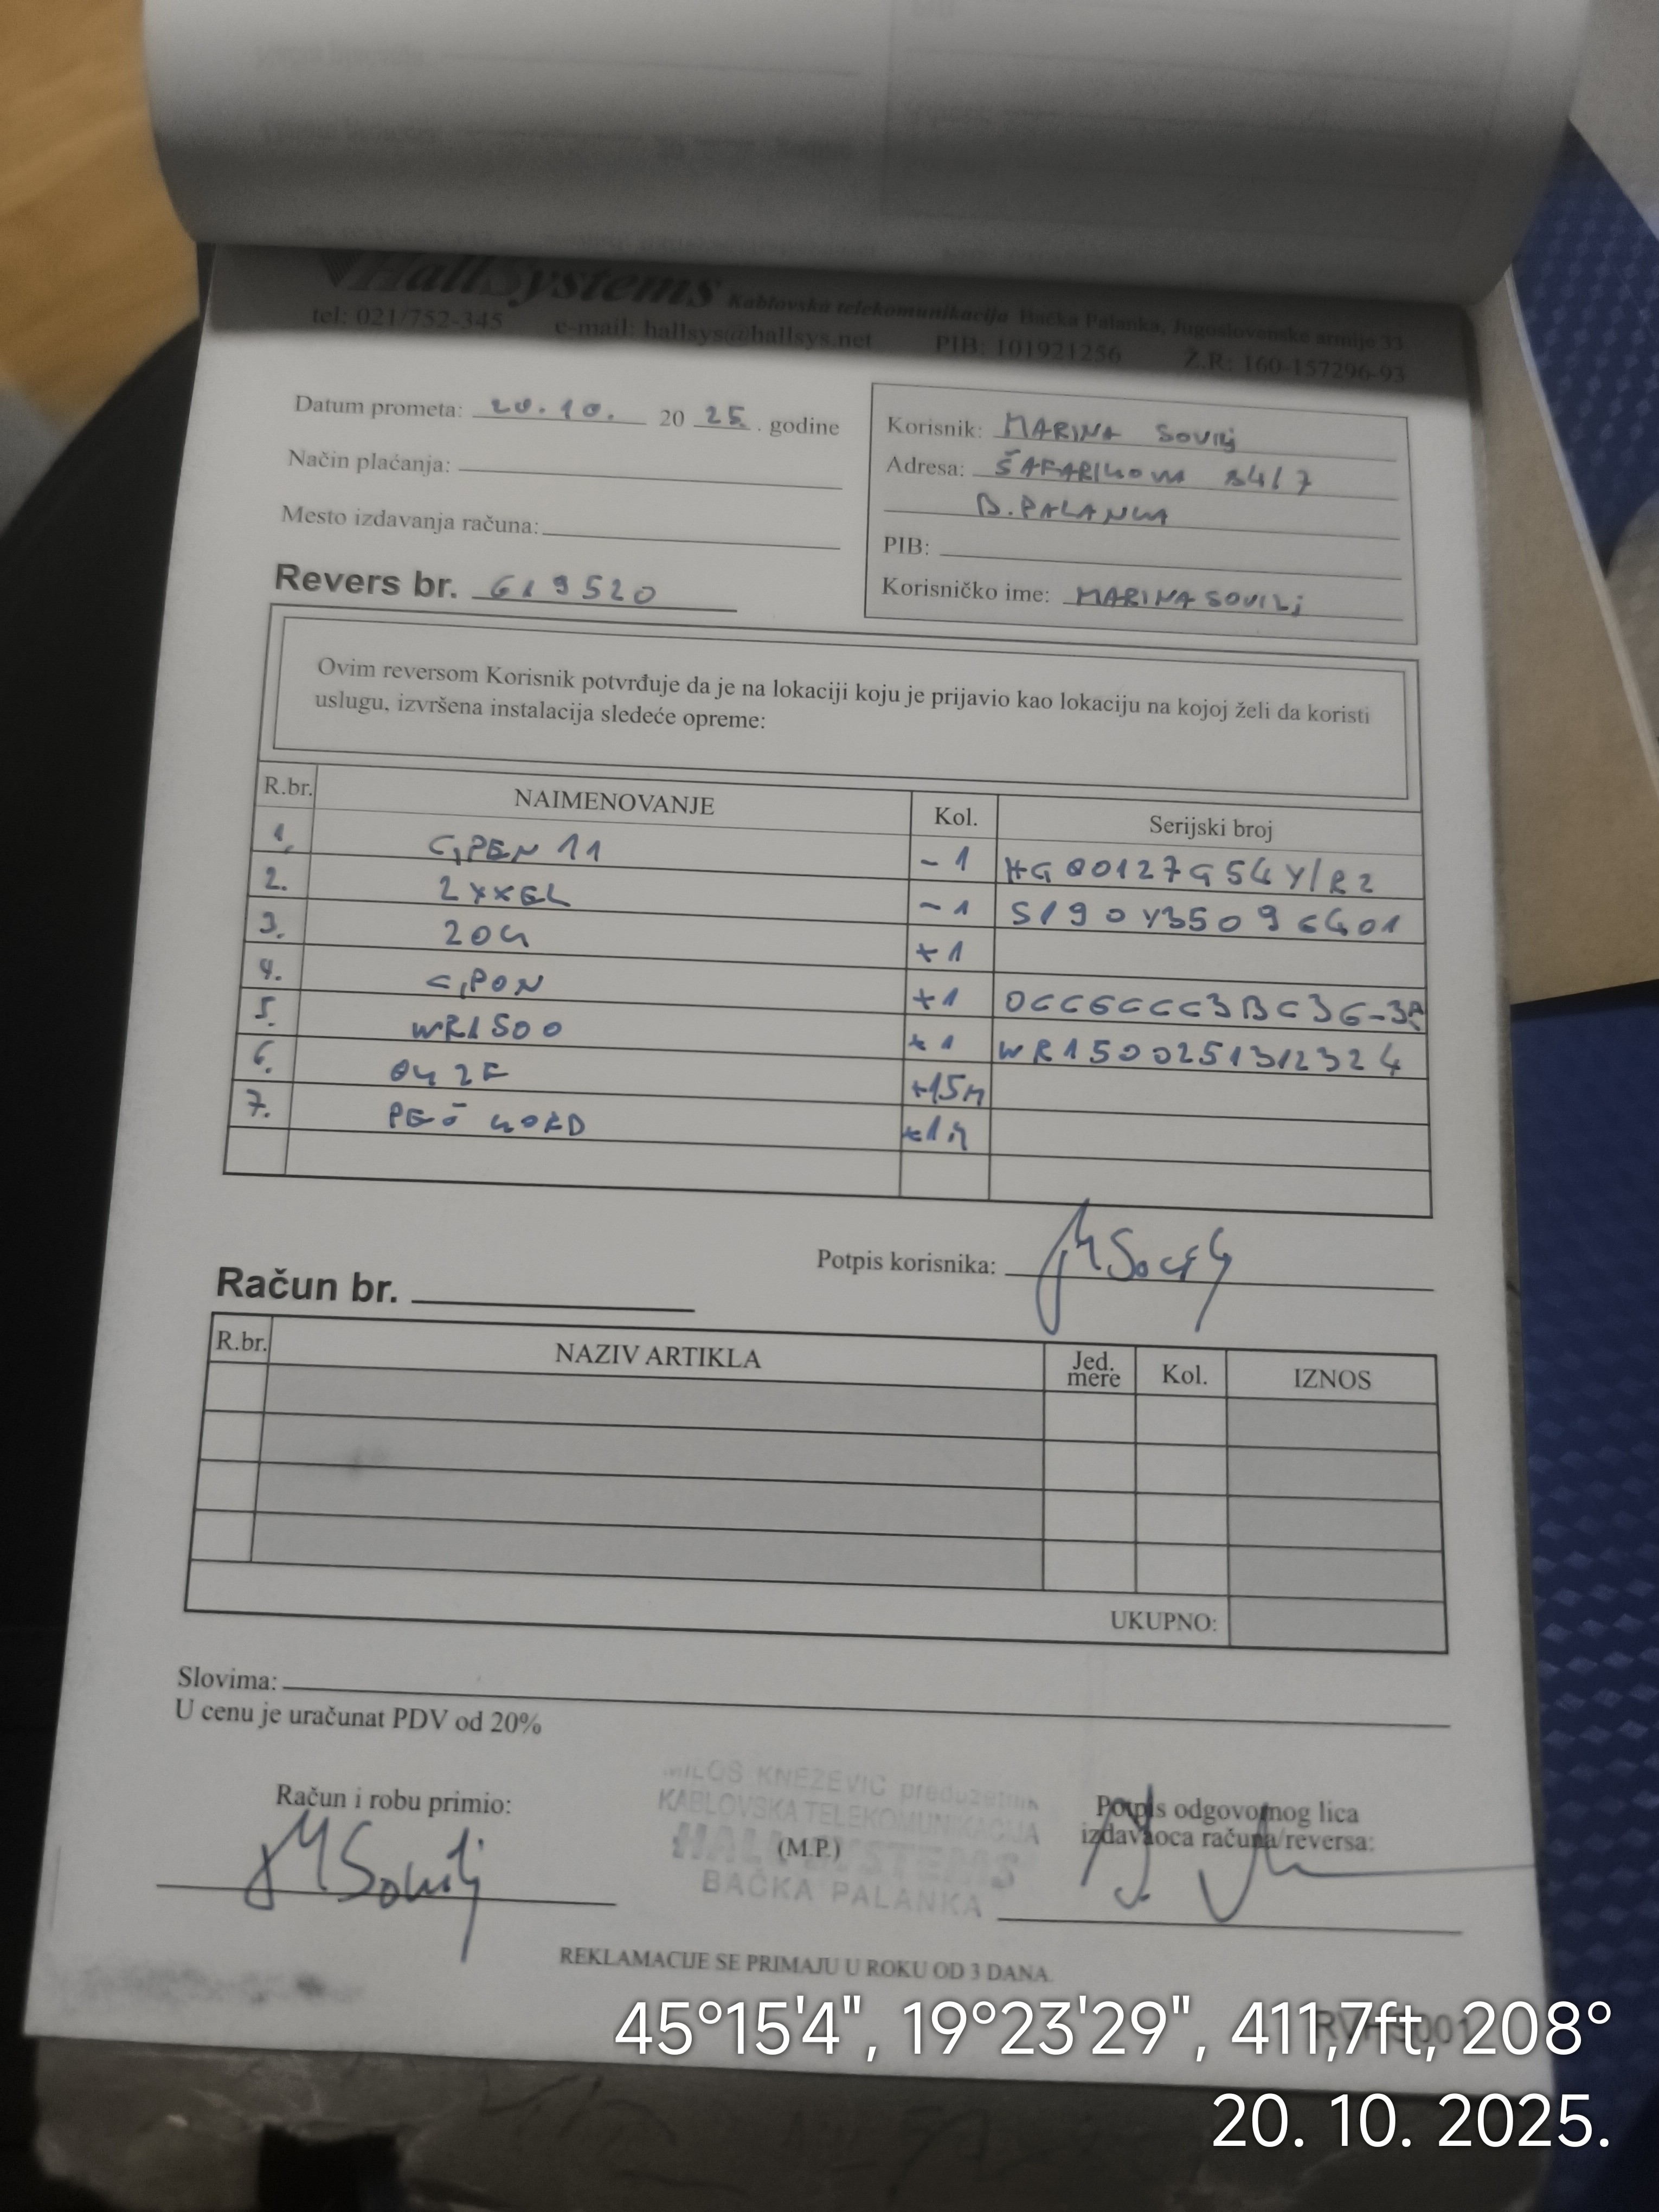 HallSystems Kablovska telekomunikacija Bačka Palanka, Jugoslovenske armije 33
tel: 021/752-345 e-mail: hallsys@hallsys.net PIB: 101921256 Ž.R: 160-157296-93
Datum prometa: 20.10. 20 25. godine
Način plaćanja:
Mesto izdavanja računa:
Revers br. 619520
Korisnik: MARINA SOVILJ
Adresa: ŠAFARIKOVA 34/7
B. PALANKA
PIB:
Korisničko ime: MARINASOVILJ
Ovim reversom Korisnik potvrđuje da je na lokaciji koju je prijavio kao lokaciju na kojoj želi da koristi
uslugu, izvršena instalacija sledeće opreme:
R.br. NAIMENOVANJE Kol. Serijski broj
1. -1
2. -1
3. +1
4. GPON +1
5. WR1500 +1 WR1500251312324
6. +15m
7. +1
Potpis korisnika:
Račun br.
R.br. NAZIV ARTIKLA Jed. mere Kol. IZNOS
UKUPNO:
Slovima:
U cenu je uračunat PDV od 20%
Račun i robu primio:
MILOŠ KNEŽEVIĆ preduzetnik
KABLOVSKA TELEKOMUNIKACIJA
HALL SYSTEMS
(M.P.)
BAČKA PALANKA
Potpis odgovornog lica
izdavaoca računa/reversa:
REKLAMACIJE SE PRIMAJU U ROKU OD 3 DANA.
45°15'4", 19°23'29", 411,7ft, 208°
20. 10. 2025.